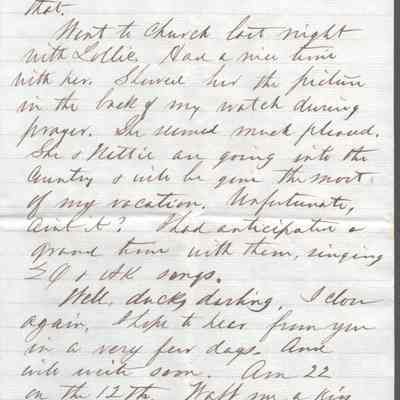 that.
Went to Church last night
with Lollie. Had a nice time
with her. Showed her the picture
in the back of my watch during
prayer. She seemed much pleased.
She & Nettie are going into the
Country & will be gone the most
of my vacation. Unfortunate,
Aint it? I had anticipated a
grand time with them, singing
songs.
Well, ducky darling, I close
again. I hope to hear from you
in a very few days. And
will write soon. Am 22
on the 12th. Waft me a kiss